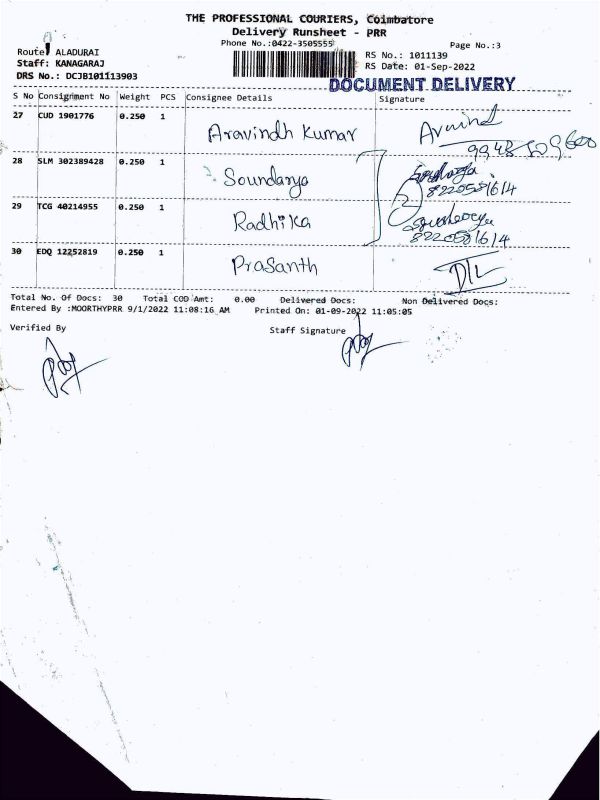 THE PROFESSIONAL COURIERS, Coimbatore
Delivery Runsheet - PRR
Phone No.:0422-3505555
Page No.:3
Route: ALADURAI
RS No.: 1011139
Staff: KANAGARAJ
RS Date: 01-Sep-2022
DRS No.: DCJB101113903
DOCUMENT DELIVERY
S No Consignment No Weight PCS Consignee Details Signature
27 CUD 1901776 0.250 1 Aravindh Kumar Arvind
28 SLM 302389428 0.250 1 Soundarya
8220581614
29 TCG 40214955 0.250 1 Radhika
8220581614
30 EDQ 12252819 0.250 1 Prasanth
Total No. Of Docs: 30 Total COD Amt: 0.00 Delivered Docs: Non Delivered Docs:
Entered By :MOORTHYPRR 9/1/2022 11:08:16 AM Printed On: 01-09-2022 11:05:05
Verified By Staff Signature